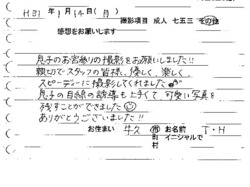 H31年1月14日(月)
撮影項目 成人 七五三 その他
感想をお願いします
息子のお宮参りの撮影をお願いしました!!
親切でスタッフの皆様、優しく、楽しく、
スピーディーに撮影してくれました
息子の目線の誘導も上手くて、可愛い写真を
残すことができました
ありがとうございました!!
お住まい 牛久 市 町 村 お名前 イニシャルで T・H